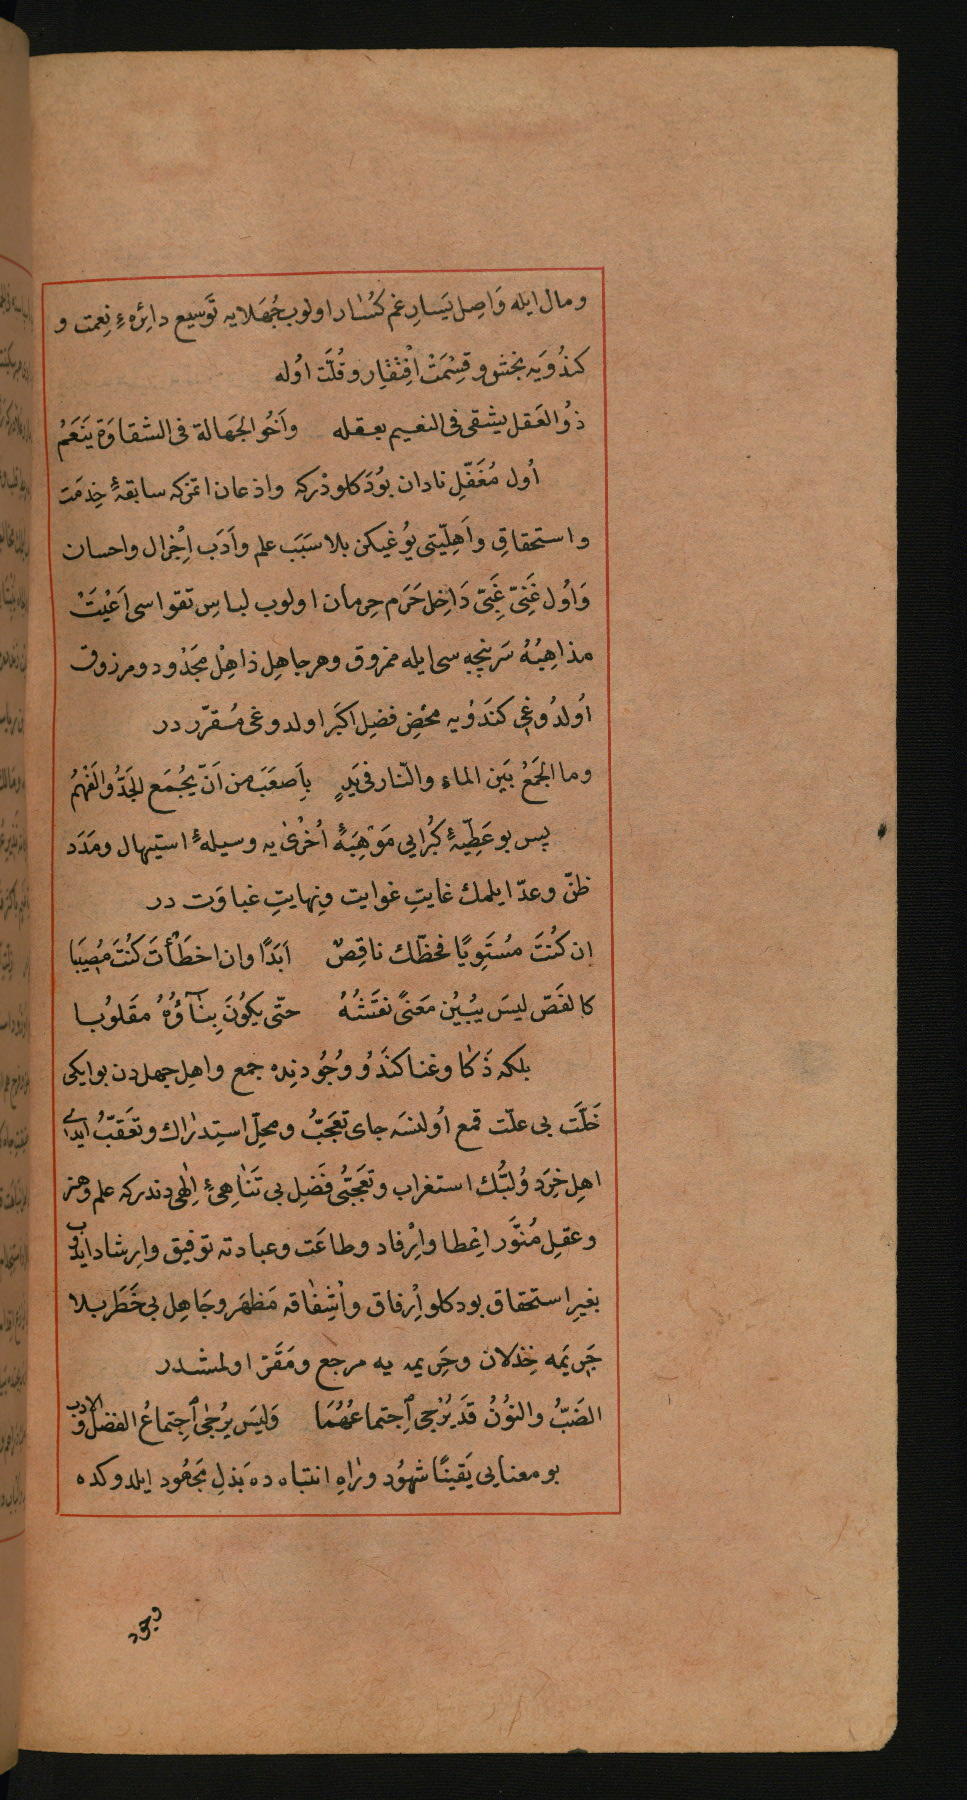 و مال ایله وَاصِل یَسارِ غم کسٰار اولوب جُهَلایه تَوسیع دائِرهٔ نِعمت و
کندُویَه بخش و قِسْمَتْ اِفْتِقٰارِ و قُلَّت اوُله
ذوُ العَقل یشقی فی النعیم بعقله    وَاَخُو الجَهالة فی الشقاوَة یَنعَمُ
اوُل مُغَفَّلِ نادان بوُدَکلو دْرکه واذعان اتمزکه سابقهٔ خِدمَت
و استحقاقِ و اَهِلیّتی یوُغیکن بلا سَبَب علم و اَدَب اِجْزال و احسان
وَاوُل غَنِیّ غَبِیّ دَاخِل حَرَم حِرمان اولوب لباسِ تقواسی اَعْیَتْ
مذاهِبُهُ سَرپنچه سی ایله ممزوق و هر جاهِل ذاهِل مَجْدُود و مرزوق
اوُلدوُغی کنَدوُیه محْضِ فضلِ اکبَر اولدوغی مُقرّر در
وما الجَمعُ بَین الماءِ والنّار فی یَدٍ    بِاَصعَبَ من اَنْ یُجْمَع الجَدُّ والفَهْمُ
پس بو عَطِیّهٔ کُبرایی مَوْهِبَهٔ اُخْرٰی یه وسیلهٔ استیهال و مَدَد
ظنّ و عدّ ایلمك غایتِ غوایت و نِهایتِ غباوَت در
ان کنُتَ مُستَوِیًا فحظّك ناقِصٌ    اَبَدًا و ان اخطَأتَ کنُتَ مُصیبَا
کالفَصّ لیسَ یبُیٖن مَعنًی نَقشُهُ    حتّی یکوُنَ بِنٰآؤُهُ مقَلوُبا
بلکه ذَکا و غنا کندوُ وجُودنده جمع و اهل جهلدن بو ایکی
خَلّت بی علّت قمع اوُلنسَه جای تعَجبُّ و محلّ استِدرٰاك و تعَقبُّ ایدٖ
اهل خِرَد وُ لبُّك استغراب و تعَجبّی فَضِل بی تَنٰاهیٔ اِلٰهی دندرکه علم و هنر
و عقلِ مُنوَّر اِعْطا و اِرْفاد و طاعَت و عبادته توفیق و اِرشاد ایدوب
بغیرِ استحقاق بودکلو اِرْفاق و اِشْفٰاقه مَظهَر و جَاهِل بی خَطَر بلا
جَریَمه خِذلان و جَریمه یه مرجع و مَقَرّ اولمشدر
الضَبُّ والنوُنُ قدَ یُرْجی اِجتماعُهُمَا    وَلیسَ یرُجٰی اِجتِماعُ الفضل و الادب
بو معنایی یَقیناً شهوُد و رٰاهِ انتباه ده بَذلِ مَجَهُود ایلدوکده
وجود